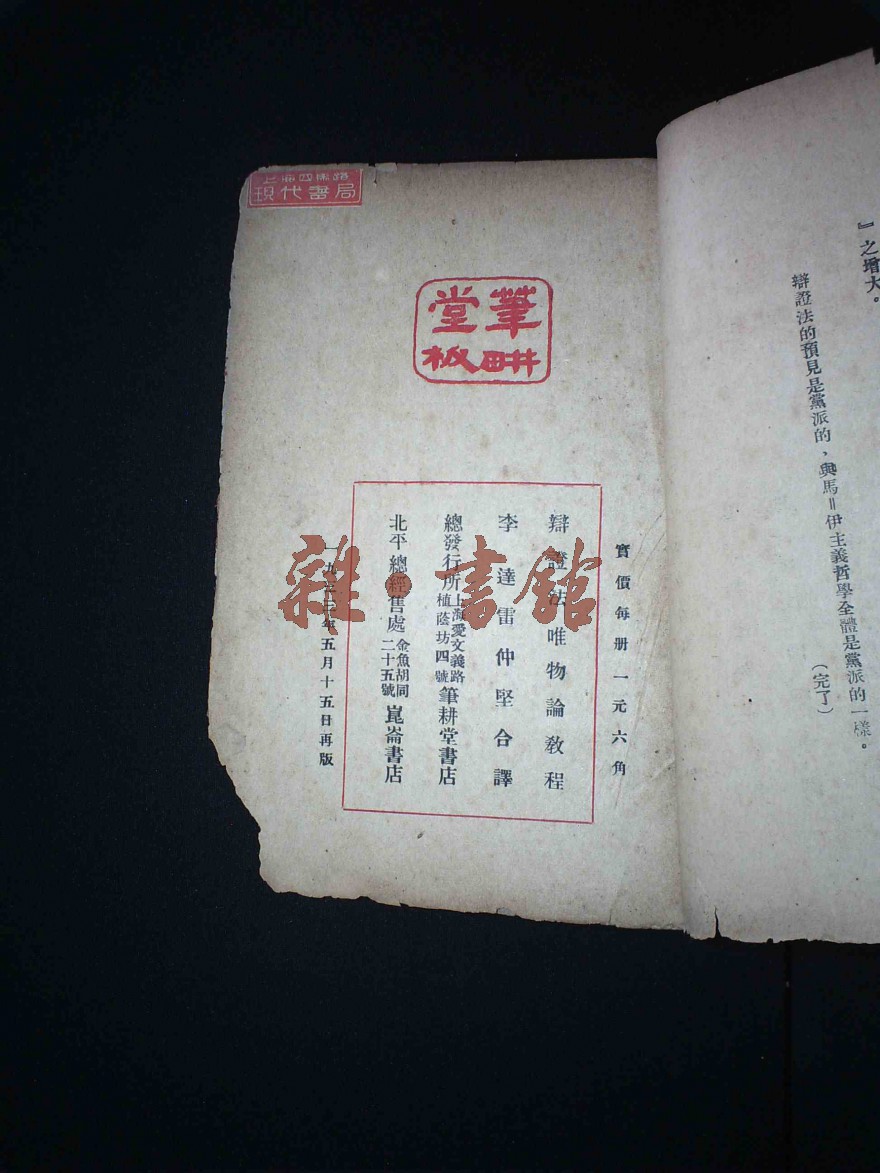 』之增大。
辯證法的預見是黨派的，與馬＝伊主義哲學全體是黨派的一樣。
（完了）
上海四馬路
現代書局
筆耕堂板
實價每册一元六角
辯證法唯物論教程
李達雷仲堅合譯
總發行所上海愛文義路植蔭坊四號筆耕堂書店
北平總經售處金魚胡同二十五號崑崙書店
一九三三年五月十五日再版
雜·書館